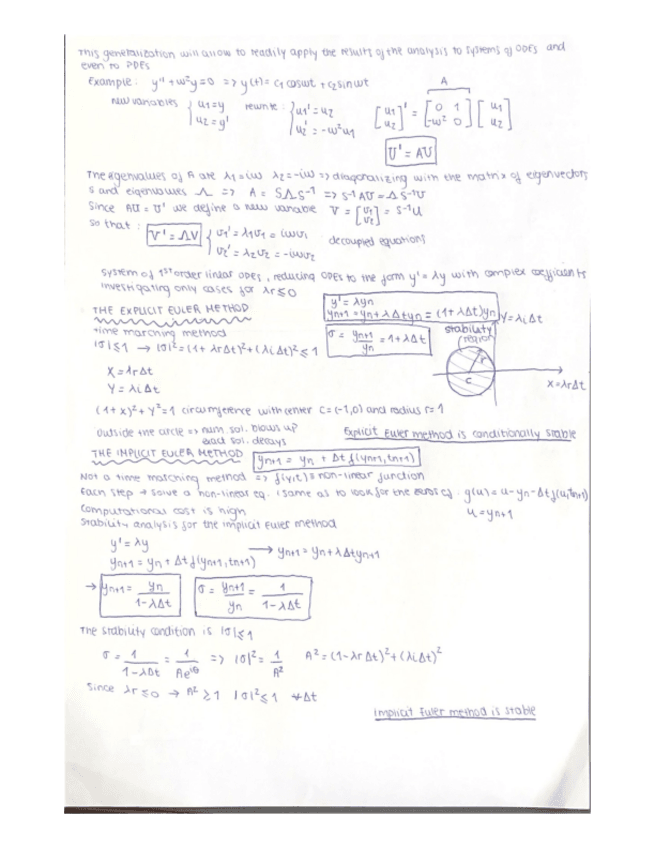 This generalization will allow to readily apply the results of the analysis to systems of ODEs and
even to PDEs
Example: y'' + ω²y = 0 => y(t) = c₁ cosωt + c₂ sinωt
new variables { u₁ = y  u₂ = y'  rewrite: { u₁' = u₂  u₂' = -ω²u₁  [u₁ u₂]' = [0 1 -ω² 0] [u₁ u₂]  A
U' = AU
The eigenvalues of A are λ₁ = iω λ₂ = -iω => diagonalizing with the matrix of eigenvectors
S and eigenvalues Λ => A = SΛS⁻¹ => S⁻¹AU = ΛS⁻¹U
Since AU = U' we define a new variable V = [v₁ v₂] = S⁻¹U
so that: V' = ΛV { v₁' = λ₁v₁ = iωv₁
v₂' = λ₂v₂ = -iωv₂  decoupled equations
System of 1st order linear ODEs, reducing ODEs to the form y' = λy with complex coefficients
investigating only cases for λr ≤ 0
THE EXPLICIT EULER METHOD
y' = λyn
yn+1 = yn + λΔtyn = (1+λΔt)yn
time marching method
σ = yn+1/yn = 1 + λΔt
|σ| ≤ 1 → |σ|² = (1+λrΔt)² + (λiΔt)² ≤ 1
stability region
Y = λiΔt
r
c
X = λrΔt
X = λrΔt
Y = λiΔt
(1+X)² + Y² = 1 circumference with center C = (-1,0) and radius r = 1
outside the circle => num. sol. blows up
exact sol. decays
Explicit Euler method is conditionally stable
THE IMPLICIT EULER METHOD  yn+1 = yn + Δt f(yn+1, tn+1)
Not a time marching method => f(y,t) is non-linear function
Each step → solve a non-linear eq. (same as to look for the zeros of: g(u) = u - yn - Δtf(u,tn+1)
computational cost is high  u = yn+1
Stability analysis for the implicit Euler method
y' = λy
yn+1 = yn + Δt f(yn+1, tn+1) → yn+1 = yn + λΔtyn+1
→ yn+1 = yn/(1-λΔt)  σ = yn+1/yn = 1/(1-λΔt)
The stability condition is |σ| ≤ 1
σ = 1/(1-λΔt) = 1/(Ae^iθ) => |σ|² = 1/A²  A² = (1-λrΔt)² + (λiΔt)²
Since λr ≤ 0 → A² ≥ 1 |σ|² ≤ 1 ∀Δt
Implicit Euler method is stable